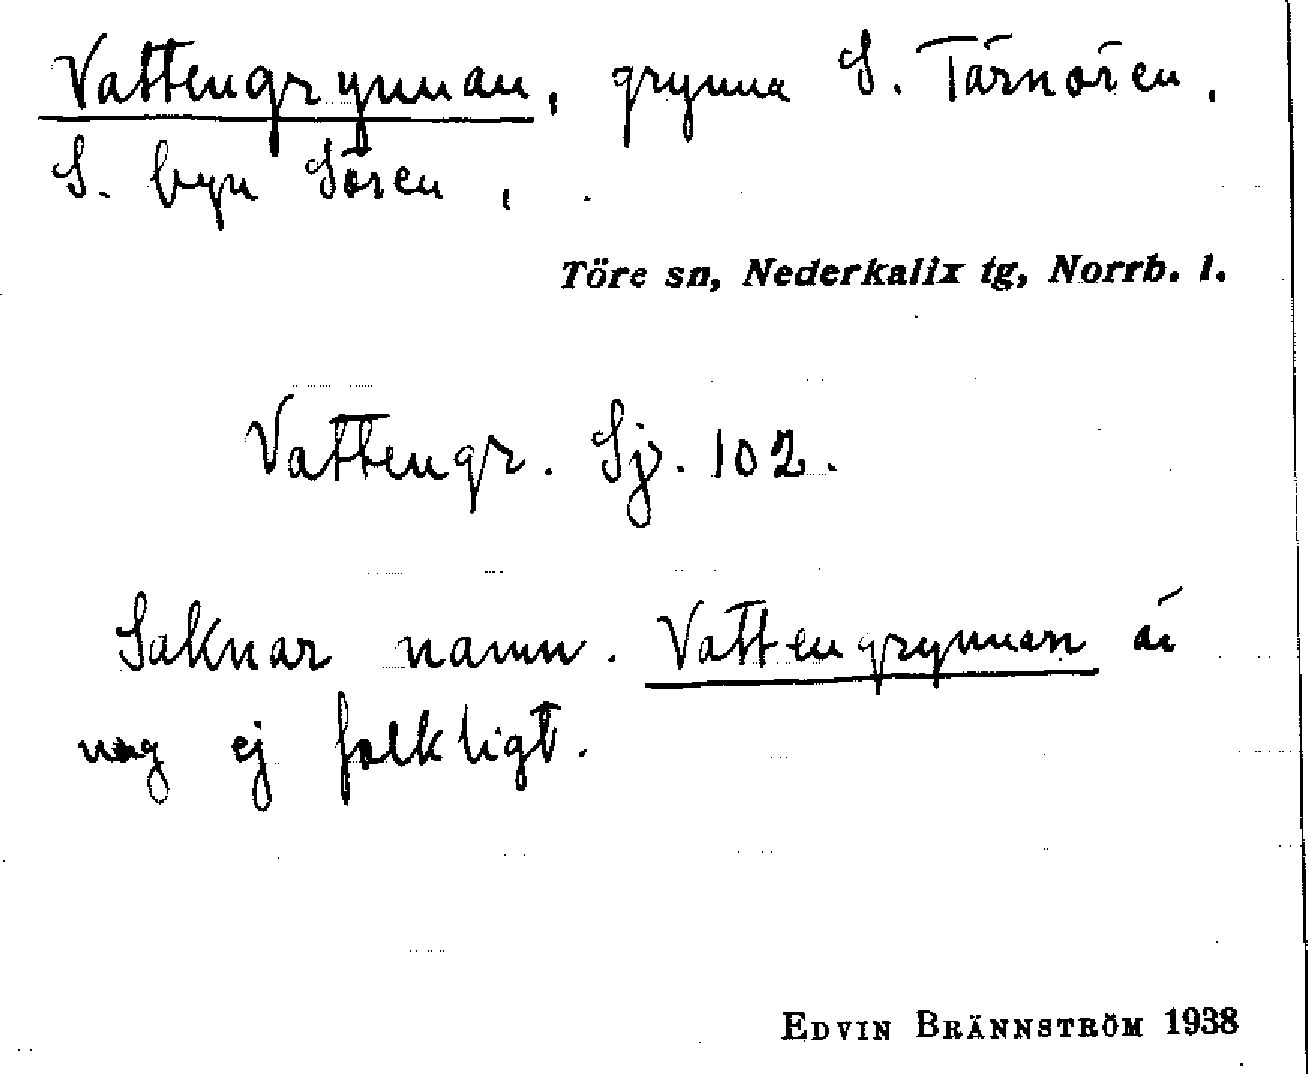 Vattengrynnan, grynna S. Tärnören,
S. byn Sören, .
Töre sn, Nederkalix tg, Norrb. l.
Vattengr. Sj. 102.
Saknar namn. Vattengrynnan är
nog ej folkligt.
EDVIN BRÄNNSTRÖM 1938